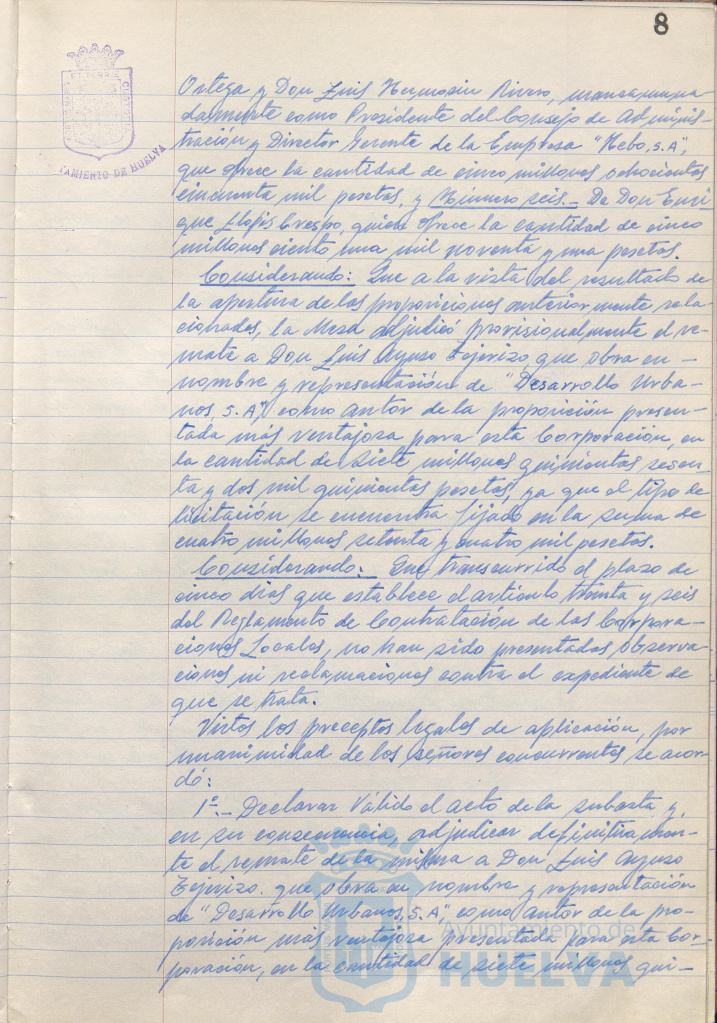 8
AYUNTAMIENTO DE HUELVA
Ortega y Don Luis Hermosin Rivero, mancomuna
damente como Presidente del Consejo de Adminis-
tración y Director Gerente de la Empresa "Hebo, S.A",
que ofrece la cantidad de cinco millones ochocientas
cincuenta mil pesetas, y Número seis.- De Don Enri
que Llopis Crespo, quien ofrece la cantidad de cinco
millones ciento una mil noventa y una pesetas.
Considerando: Que a la vista del resultado de
la apertura de las proposiciones anteriormente rela
cionadas, la Mesa adjudicó provisionalmente el re-
mate a Don Luis Ayuso Tejerizo, que obra en -
nombre y representación de "Desarrollo Urba-
nos, S.A", como autor de la proposición presen-
tada más ventajosa para esta Corporación, en
la cantidad de siete millones quinientas sesen-
ta y dos mil quinientas pesetas, ya que el tipo de
licitación se encuentra fijado en la suma de
cuatro millones setenta y cuatro mil pesetas.
Considerando: Que transcurrido el plazo de
cinco dias que establece el artículo treinta y seis
del Reglamento de Contratación de las Corpora-
ciones Locales, no han sido presentadas observa-
ciones ni reclamaciones contra el expediente de
que se trata.
Vistos los preceptos legales de aplicación, por
unanimidad de los señores concurrentes se acor-
dó:
1º.- Declarar Válido el acto de la subasta y,
en su consecuencia, adjudicar definitivamen-
te el remate de la misma a Don Luis Ayuso
Tejerizo. que obra en nombre y representación
de "Desarrollo Urbanos, S.A", como autor de la pro-
posición más ventajosa presentada para esta Cor-
poración, en la cantidad de siete millones qui-
Ayuntamiento de
HUELVA